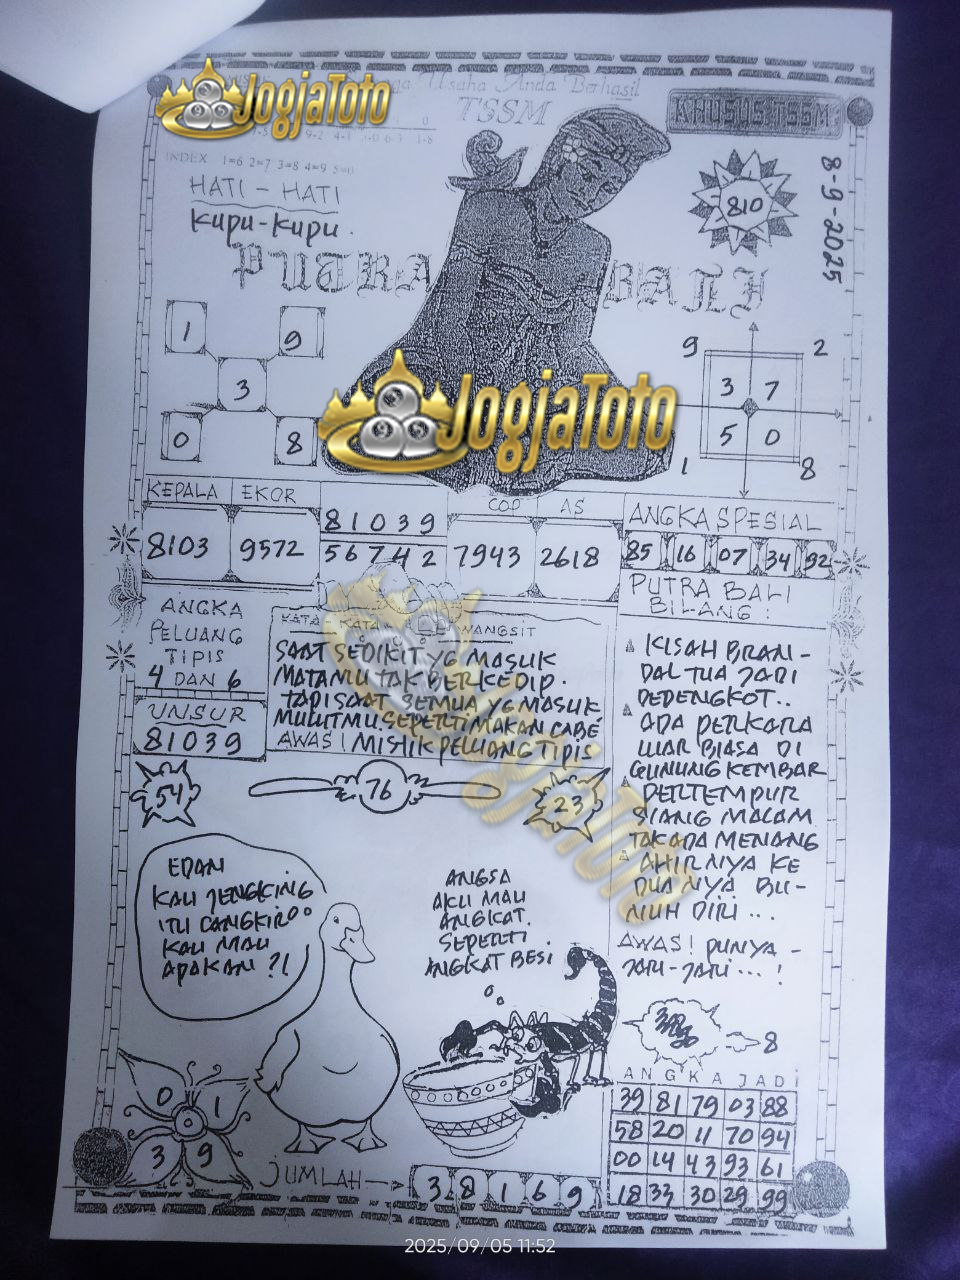 JogjaToto
Usaha Anda Berhasil
TSSM
KHUSUS TSSM
8-9-2025
INDEX 1=6 2=7 3=8 4=9 5=0
HATI - HATI
KUPU-KUPU.
810
PUTRA BALI
1 9
3
0 8
9 2
3 7
5 0
1 8
JogjaToto
KEPALA EKOR
8103 9572
81039
56742
COP AS
7943 2618
ANGKA SPESIAL
85 16 07 34 92
PUTRA BALI
BILANG :
ANGKA
PELUANG
TIPIS
4 DAN 6
UNSUR
81039
KATA KATA WANGSIT
SAAT SEDIKIT YG MASUK
MATAMU TAK BERKEDIP.
TAPI SAAT SEMUA YG MASUK
MULUTMU SEPERTI MAKAN CABE
AWAS! MISTIK PELUANG TIPIS
KISAH BRAN-
DAL TUA JADI
DEDENGKOT..
ADA PERKARA
LUAR BIASA DI
GUNUNG KEMBAR
BERTEMPUR
SIANG MALAM
TAK ADA MENANG
AHIRNYA KE
DUA NYA BU-
NUH DIRI ...
AWAS! PUNYA -
JARI-JARI ... !
54
76
23
JogjaToto
EDAN
KAU JENGKING
ITU CANGKIR
KAU MAU
APAKAN ?!
ANGSA
AKU MAU
ANGKAT.
SEPERTI
ANGKAT BESI
8
ANGKA JADI
39 81 79 03 88
58 20 11 70 94
00 14 43 93 61
18 33 30 29 99
0 1
3 9
JUMLAH
3 8 1 6 9
2025/09/05 11:52